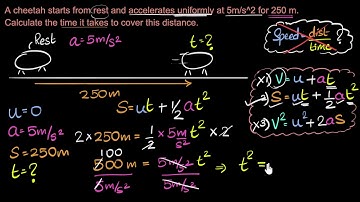 A cheetah starts from rest and accelerates uniformly at 5m/s^2 for 250 m.
Calculate the time it takes to cover this distance.
Rest a = 5m/s² t = ?
Speed = dist/time
250m
u = 0
a = 5m/s²
S = 250m
t = ?
S = ut + 1/2 at²
2 × 250m = 1/2 × 5m/s² t² × 2
100
500m = 5m/s² t² ⇒ t² =
5m/s² 5m/s²
x1) V = u + at
2) S = ut + 1/2 at²
x3) V² = u² + 2aS